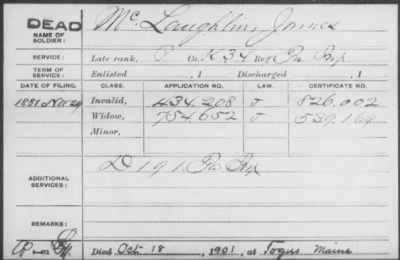 DEAD
NAME OF SOLDIER: McLaughlin, James
SERVICE: Late rank, P Co. K 34 Reg't Pa Inf
TERM OF SERVICE: Enlisted , 1 Discharged , 1
DATE OF FILING. CLASS. APPLICATION NO. LAW. CERTIFICATE NO.
1881 Nov 29 Invalid, 434.208 J 826.002
Widow, 754652 J 539.169
Minor,
ADDITIONAL SERVICES: D 191 Pa Inf
REMARKS:
Died Oct 18, 1901, at Togus Maine